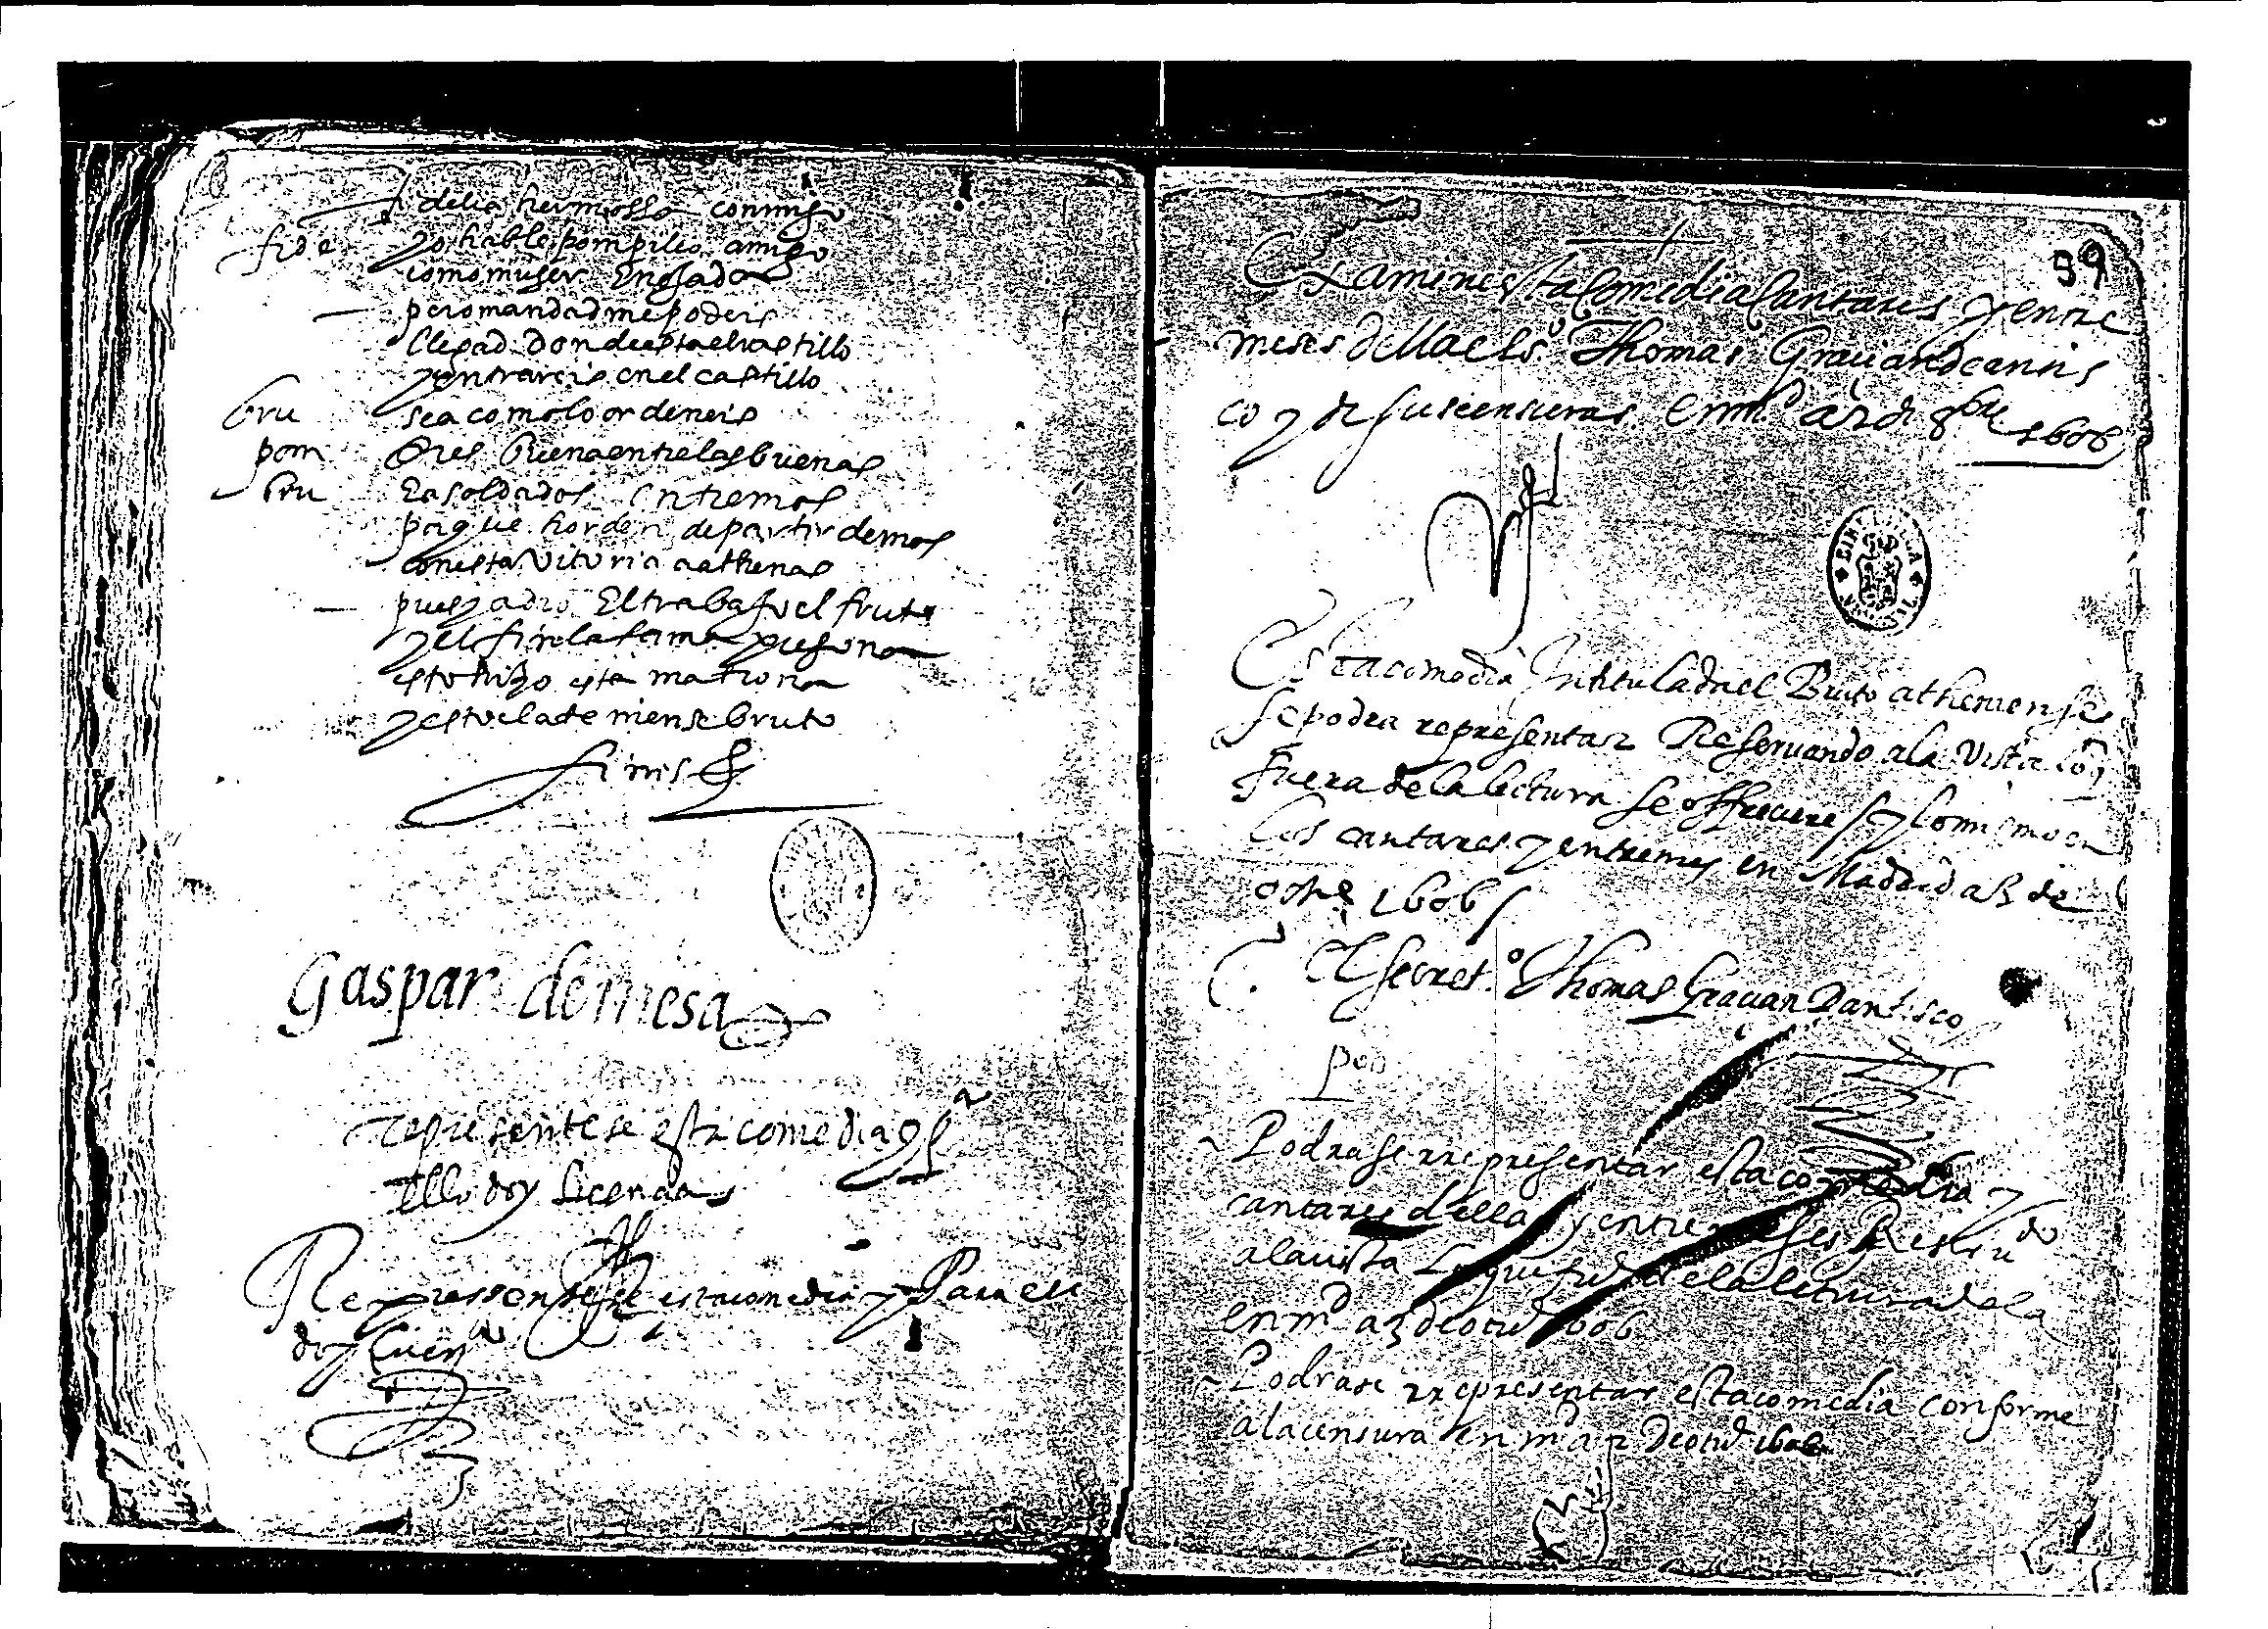 delia hermossa conmigo
fide yo hable pompilio amigo
como muger Enojada
pero mandadme podeis
llegad donde esta el rastillo
y entrareis en el castillo
bru sea como lo ordeneis
pom Eres buena entre las buenas
bru Ea soldados entremos
porque horden de partir demos
con esta vitoria a athenas
pues ya dio El trabajo el fruto
y el fin la fama pregona
esto hizo esta matrona
y esto el ateniense bruto
finis
Gaspar de mesa
representese esta comedia q pa
ello doy licencia
Representese esta comedia y Para ello
doy licena
39
Examine esta Comedia Cantares y entre
meses della el so Thomas Gracian deantis
co y de su censura. En md a 2 de 8bre 1606
Esta comedia Intitulada el Bruto atheniense
se podra representar Reservando a la vista lo q
fuera de la lectura se offreciere y lo mismo en
los cantares y entremes en Madrid a 3 de
otre 1606
El secreto Thomas Gracian Dantisco
pod
Podrase rrepresentar esta comedia y
cantares della y entremeses Reseru do
a la vista lo que fuera de la letura della
en md a 3 de otue 1606
Podrase rrepresentar esta comedia conforme
a la censura en md a 2 de otue 1606